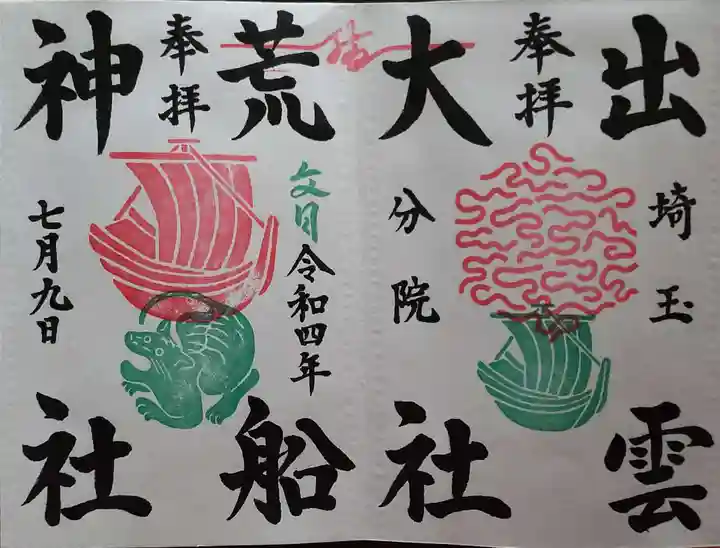 出雲
奉拝
埼玉
大社
分院
荒船
奉拝
文月
令和四年
神社
七月九日